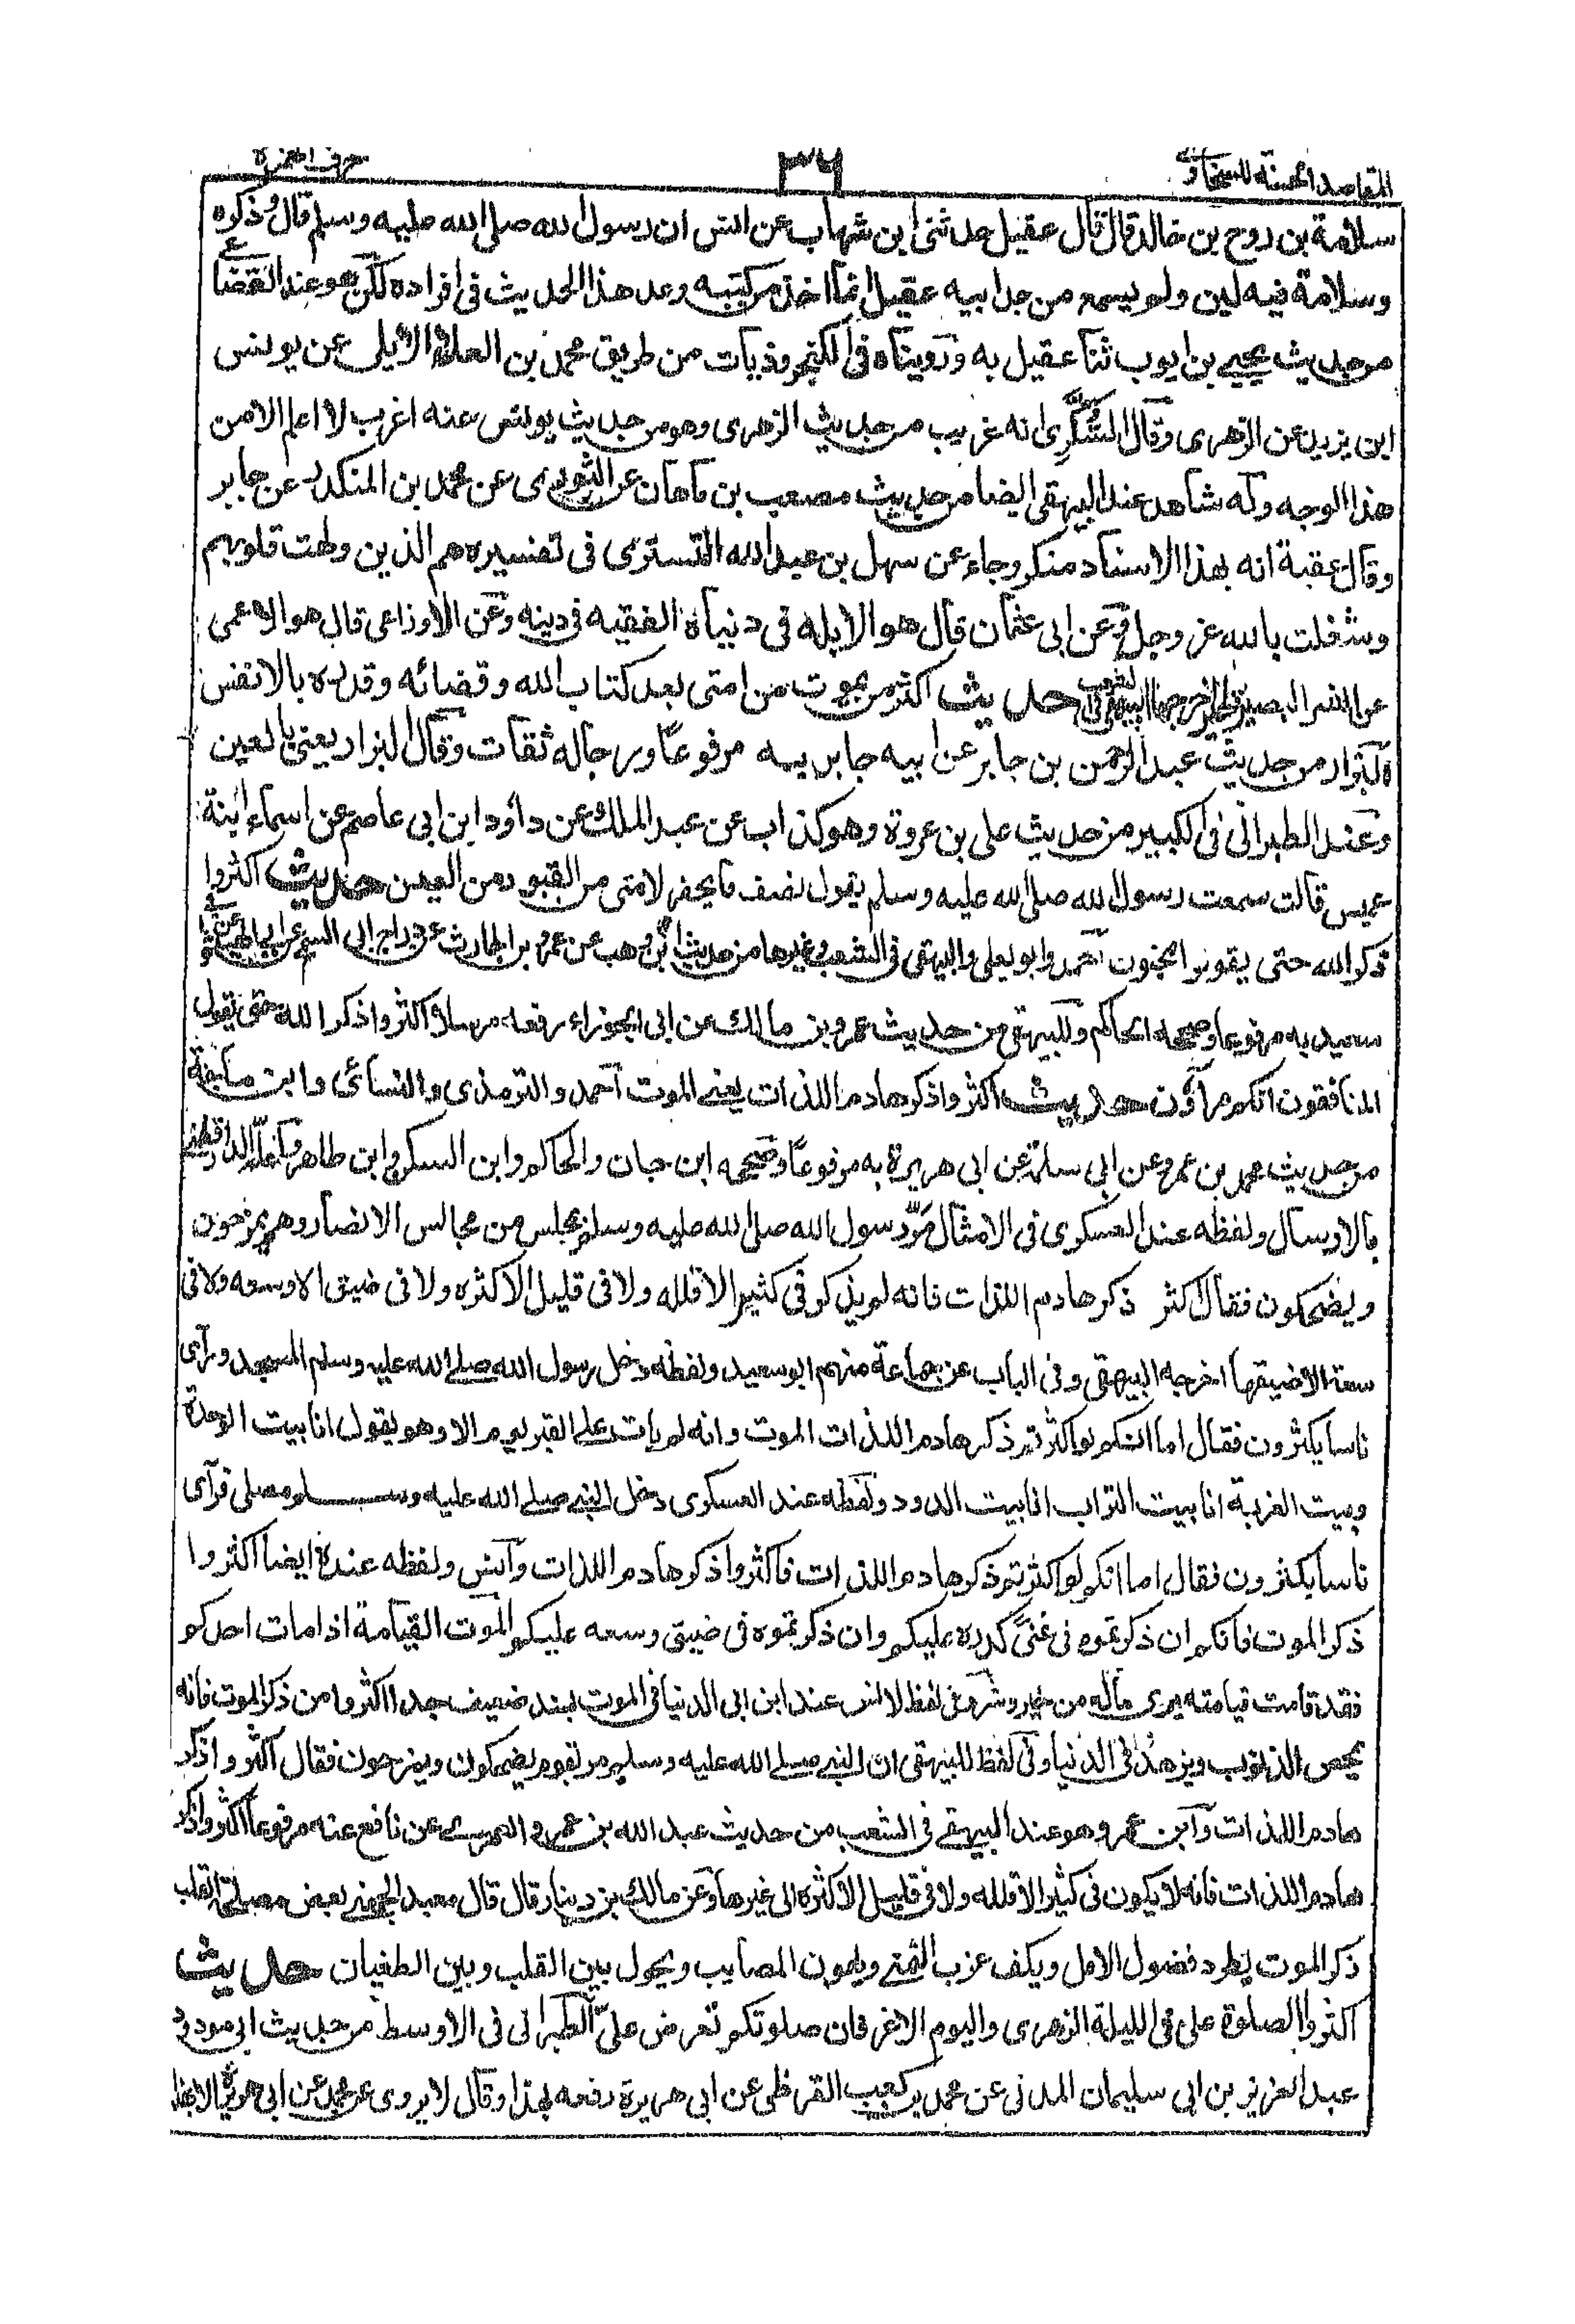 المقاصد الحسنة للسخاوى ٣٦ حرف الهمزة
سلامة بن روح بن خالد قال قال عقيل حدثنى ابن شهاب عن انس ان رسول الله صلى الله عليه وسلم قال وذكره
وسلامة فيه لين ولم يسمع من جد ابيه عقيل انما اخذ من كتبه وعد هذا الحديث فى افراده لكن هو عند القضاعى
من حديث يحيى بن ايوب ثنا عقيل به ورويناه فى الكنجروذيات من طريق محمد بن العلاء الايلى عن يونس
ابن يزيد عن الزهرى وقال العسكرى انه غريب من حديث الزهرى وهو من حديث يونس عنه اغرب لا اعلم الا من
هذا الوجه وله شاهد عند البيهقى ايضا من حديث مصعب بن ماهان عن الثورى عن محمد بن المنكدر عن جابر
وقال عقبة انه بهذا الاسناد منكر وجاء عن سهل بن عبد الله التسترى فى تفسيره هم الذين ولهت قلوبهم
وشغلت بالله عز وجل وعن ابى عثمان قال هو الابله فى دنياه الفقيه فى دينه وعن الاوزاعى قال هو الاعمى
عن الشر البصير اخرجها البيهقى فى الشعب حديث اكثر من يموت من امتى بعد كتاب الله وقضائه وقدره بالانفس
البزار من حديث عبد الرحمن بن جابر عن ابيه جابر به مرفوعا ورجاله ثقات وقال البزار يعنى بالعين
وعند الطبرانى فى الكبير من حديث على بن عروة وهو كذاب عن عبد الملك عن داؤد ابن ابى عاصم عن اسماء ابنة
عميس قالت سمعت رسول الله صلى الله عليه وسلم يقول نصف ما يحفر لامتى من القبور من العين حديث اكثروا
ذكر الله حتى يقولوا مجنون احمد وابو يعلى والبيهقى فى الشعب وغيرها من حديث ابن وهب عن عمرو بن الحارث عن دراج ابى السمح عن ابى الهيثم عن ابى
سعيد به مرفوعا وصححه الحاكم وللبيهقى من حديث عمرو بن مالك عن ابى الجوزاء رفعه مرسلا اكثروا ذكر الله حتى يقول
المنافقون انكم مراؤن حديث اكثروا ذكر هادم اللذات يعنى الموت احمد والترمذى والنسائى وابن ماجة
من حديث محمد بن عمرو عن ابى سلمة عن ابى هريرة به مرفوعا وصححه ابن حبان والحاكم وابن السكن وابن طاهر واعله الدارقطنى
بالارسال ولفظه عند العسكرى فى الامثال مر رسول الله صلى الله عليه وسلم بمجلس من مجالس الانصار وهم يمزحون
ويضحكون فقال اكثر ذكر هادم اللذات فانه لم يذكر فى كثير الا قلله ولا فى قليل الا كثره ولا فى ضيق الا وسعه ولا فى
سعة الا ضيقها اخرجه البيهقى وفى الباب عن جماعة منهم ابو سعيد ولفظه دخل رسول الله صلى الله عليه وسلم المسجد ورآى
ناسا يكثرون فقال اما انكم لو اكثرتم ذكر هادم اللذات الموت وانه لم يات على القبر يوم الا وهو يقول انا بيت الوحدة
وبيت الغربة انا بيت التراب انا بيت الدود ولفظه عند العسكرى دخل النبى صلى الله عليه وسلم مصلى فرآى
ناسا يكثرون فقال اما انكم لو اكثرتم ذكر هادم اللذات فاكثروا ذكر هادم اللذات وانس ولفظه عنده ايضا اكثروا
ذكر الموت فانكم ان ذكرتموه فى غنى كدره عليكم وان ذكرتموه فى ضيق وسعه عليكم الموت القيامة اذا مات احدكم
فقد قامت قيامته يرى ماله من خير وشر وفى لفظ لانس عند ابن ابى الدنيا فى الموت بسند ضعيف جدا اكثروا من ذكر الموت فانه
يمحص الذنوب ويزهد فى الدنيا وفى لفظ للبيهقى ان النبى صلى الله عليه وسلم مر بقوم يضحكون ويمزحون فقال اكثروا ذكر
هادم اللذات وابن عمر وهو عند البيهقى فى الشعب من حديث عبد الله بن عمر العمرى عن نافع عنه مرفوعا اكثروا ذكر
هادم اللذات فانه لا يكون فى كثير الا قلله ولا فى قليل الا كثره الى غيرها وعن مالك بن دينار قال قال معبد الجهنى نعم مصلحة القلب
ذكر الموت يطرد فضول الامل ويكف عزب التمنى ويهون المصايب ويحول بين القلب وبين الطغيان حديث
اكثروا الصلوة على فى الليلة الزهرى واليوم الاغر فان صلوتكم تعرض على الطبرانى فى الاوسط من حديث ابى مودود
عبد العزيز بن ابى سليمان المدنى عن محمد بن كعب القرظى عن ابى هريرة رفعه بهذا وقال لا يروى عن محمد عن ابى هريرة الا بهذا